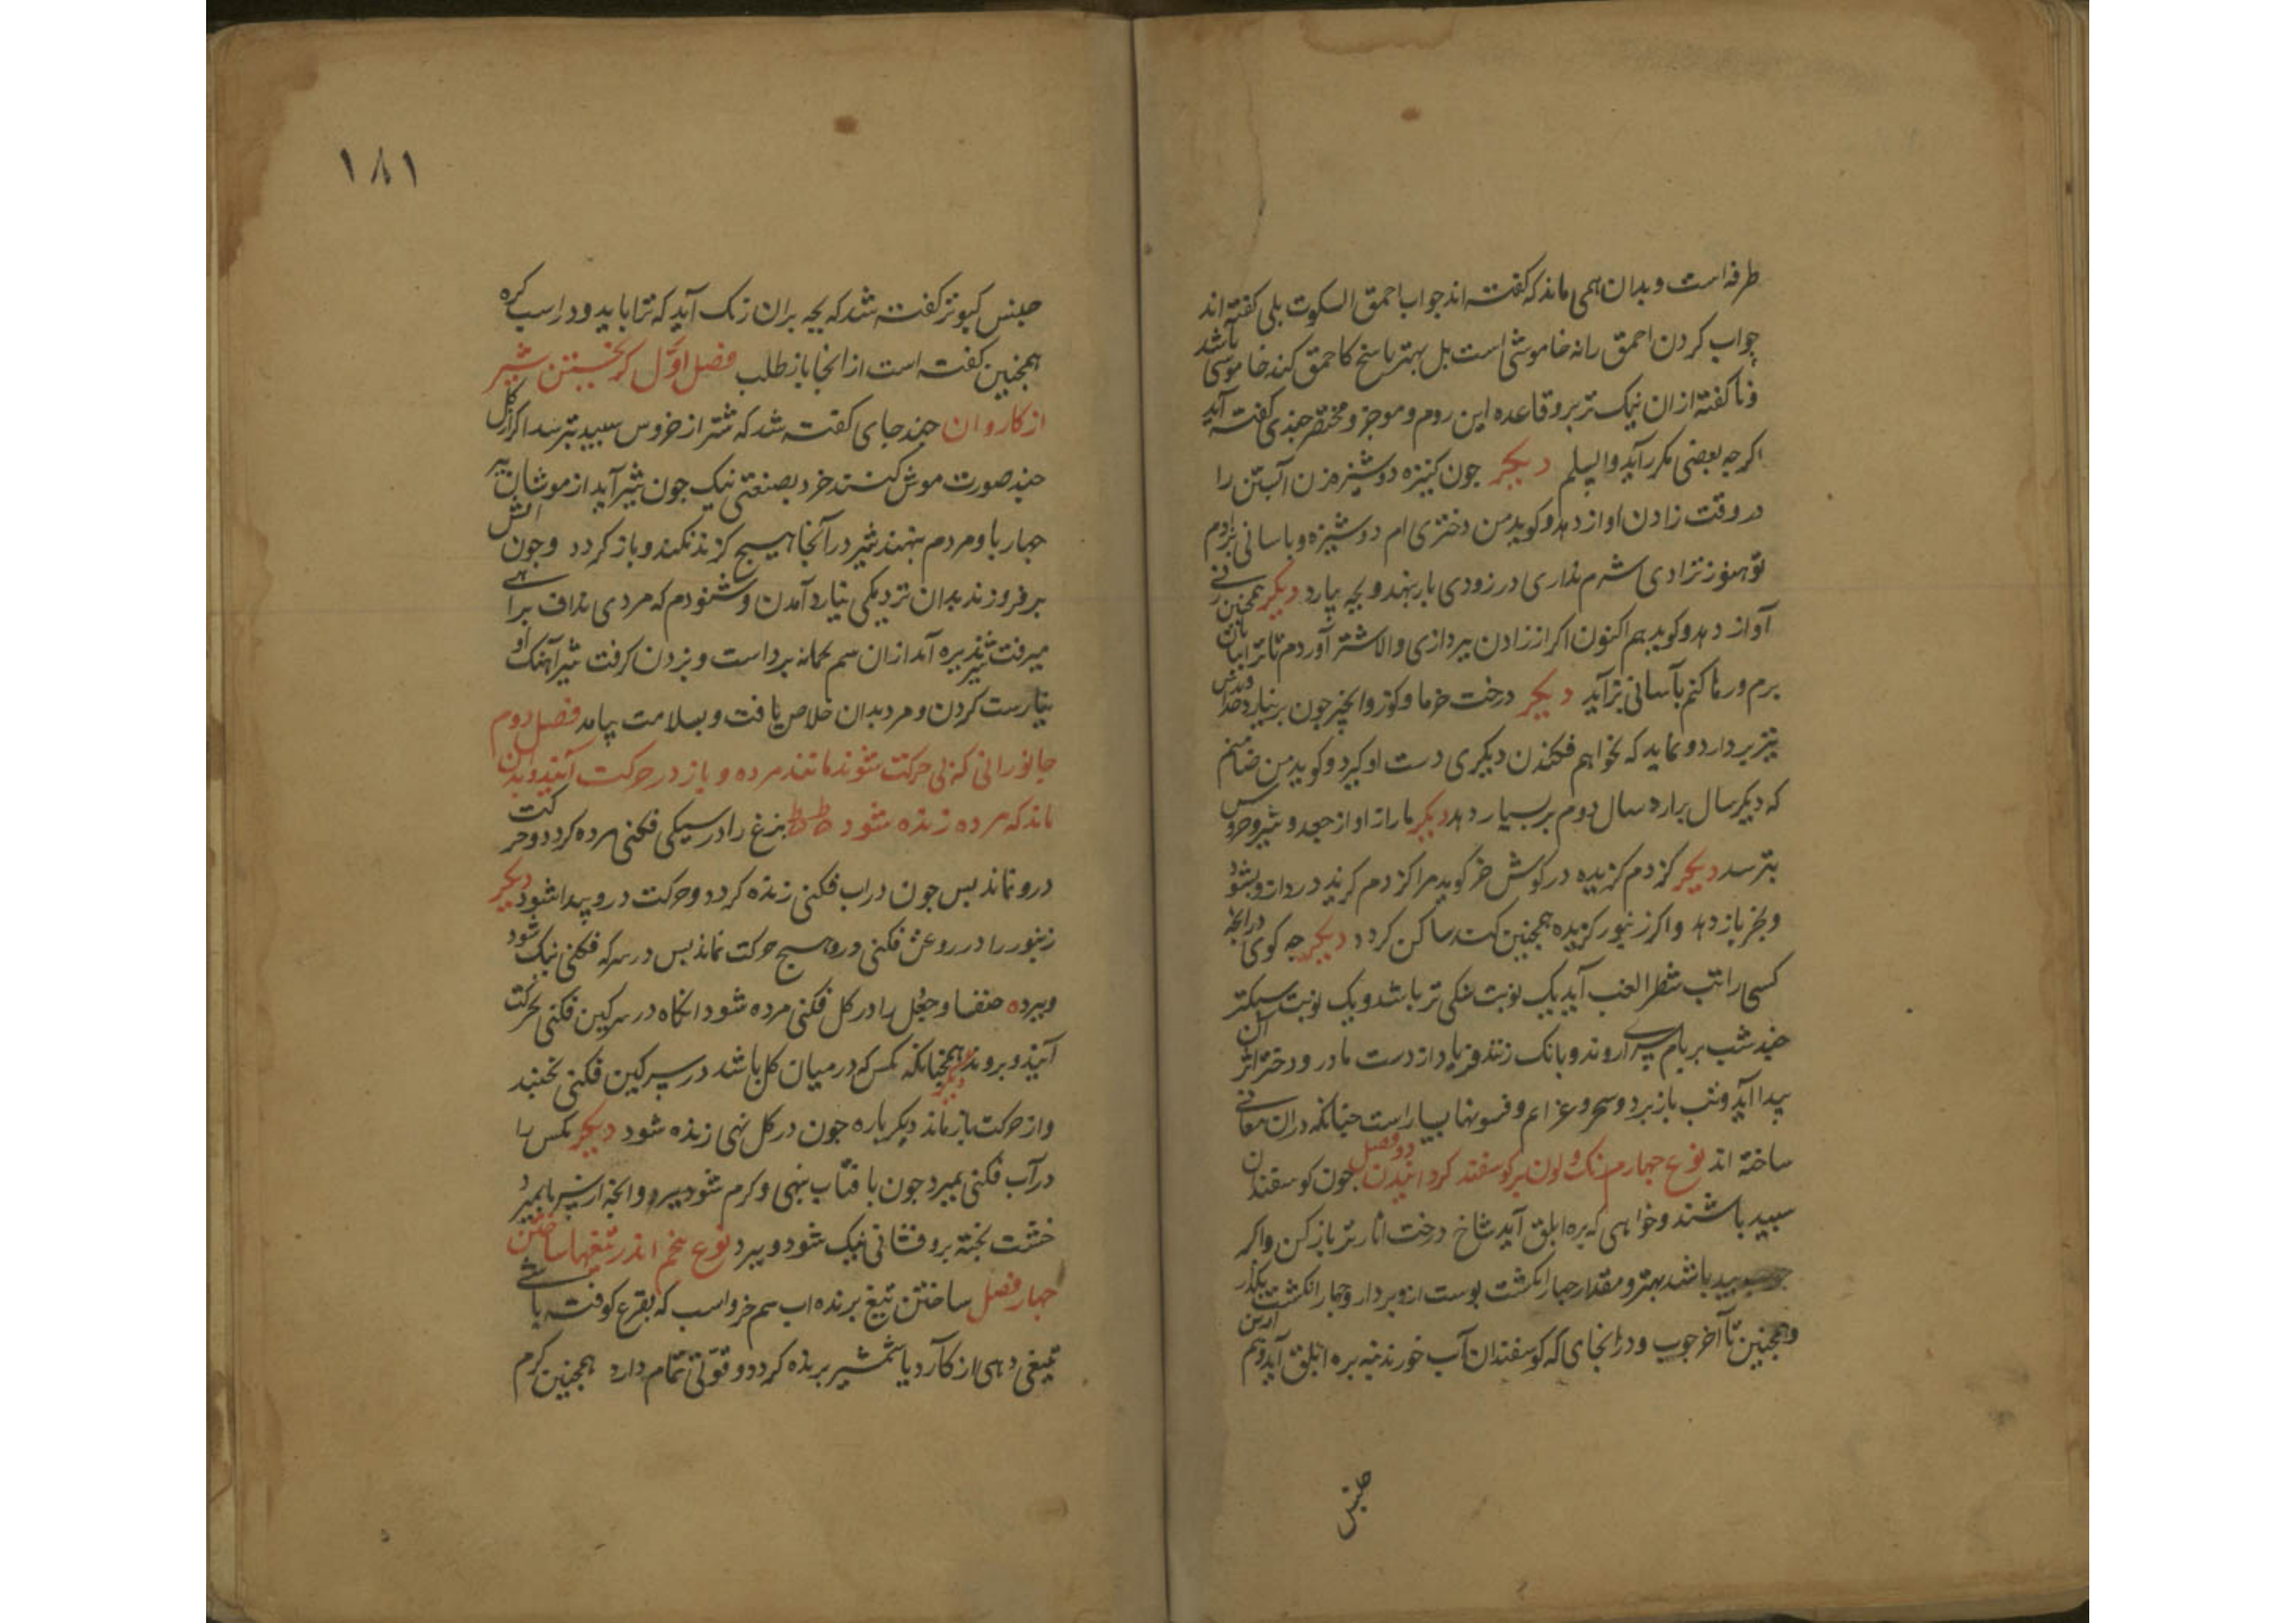 طرفه است و بدان همی ماند که گفته اند جواب احمق السکوت بلی گفته اند
جواب کردن احمق را نه خاموشی است بل بهتر پاسخ کاحمق کند خاموشی باشد
و ناگفته ازان نیک تر بر و قاعده این روم و موجز و مختصر چندی گفته آید
اگر چه بعضی مکرر آید والسلم دیگر چون کنیزه دوشیزه مر زن آبستن را
در وقت زادن اواز دهد و کوید من دختری ام دوشیزه و باسانی بزادم
تو هنوز نزادی شرم نداری در زودی بار بنهد و بچه بیارد دیگر همچنین
آواز دهد و کوید هم اکنون اکر از زادن بپردازی والا شتر آوردم تا ترا
برم و رها کنم بآسانی بزآید دیگر درخت خرما و کوز و انجیر چون بر نیارد
تبر بردارد و نماید که بخواهم فکندن دیکری دست او کیرد و کوید من ضامنم
که دیکر سال برارد سال دوم بر بسیار دهد دیگر مار از اواز جغد و شیر و خروس
بترسد دیگر کژدم کزیده در کوش خر کوید مرا کژدم کزید درد ازو بشود
و بخر باز دهد و اکر زنبور کزیده همچنین کند ساکن کردد دیگر چه کوی درانچه
کسی را تب شطر الغب آید یک نوبت سبکی تر باشد و یک نوبت سبکتر
چند شب بر بام سرای روند و بانک زنند و فریاد از دست مادر و دختر اثر آن
پیدا آید و تب باز برد و سحر و عزائم و فسونها بسیار است چنانکه دران معانی
ساخته اند نوع چهارم رنک و لون بر کوسفند کردانیدن دو فصل چون کوسفندان
سپید باشند و خواهی که بره ابلق آید شاخ درخت انار تر باز کن و اکر
چوب بید باشد بهتر و مقدار چهار انکشت پوست ازو بردار و چهار انکشت بکذار
و همچنین تا آخر چوب و در انجای که کوسفندان آب خورند بنه بره ابلق آید و هم
جنس
۱۸۱
جنس کبوتر کفته شد که بچه بران رنک آید که ترا باید و در اسب کره
همچنین کفته است از انجا باز طلب فصل اوّل کریختن شیر
از کاروان چند جای کفته شد که شیر از خروس سپید بترسد اکر از کل
چند صورت موش کنند خرد بصنعتی نیک چون شیر آید از موشان
چهار پا و مردم بنهند شیر در آنجا هیچ کزند نکند و باز کردد و چون آتش
بر فروزند بدان نزدیکی نیارد آمدن و شنودم که مردی نداف براهی
میرفت شیر پذیره آمد ازان سهم کمانه برداشت و بزدن کرفت شیر آهنک او
نیارست کردن و مرد بدان خلاص یافت و بسلامت بیامد فصل دوم
جانورانی که بی حرکت شوند مانند مرده و باز در حرکت آیند و بدان
ماند که مرده زنده شود بزغ را در سیکی فکنی مرده کردد و حرکت
درو نماند پس چون در اب فکنی زنده کردد و حرکت درو پیدا شود دیگر
زنبور را در روغن فکنی درو هیچ حرکت نماند پس در سرکه فکنی نیک شود
و بپرد خنفسا و جعل را در کل فکنی مرده شود انکاه در سرکین فکنی بحرکت
آیند و بروند دیگر همچنانکه مکس که در میان کل باشد در سرکین فکنی نجنبد
و از حرکت باز ماند دیکر باره چون در کل نهی زنده شود دیگر مکس را
در آب فکنی بمیرد چون بافتاب بنهی و کرم شود بپرد و انچه از سرما بمیرد
خشت پخته برو فشانی نیک شود و بپرد نوع پنجم اندر تیغها ساختن
چهار فصل ساختن تیغ برنده اب سم خر و اسب که بقرع کوفته باشی
تیغی دهی از کارد یا شمشیر برنده کردد و قوّتی تمام دارد همچنین کرم